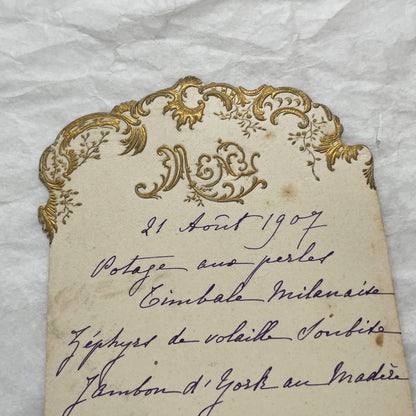 Menu
21 Août 1907
Potage aux perles
Timbale Milanaise
Zéphyrs de volaille Soubise
Jambon d'York au Madère